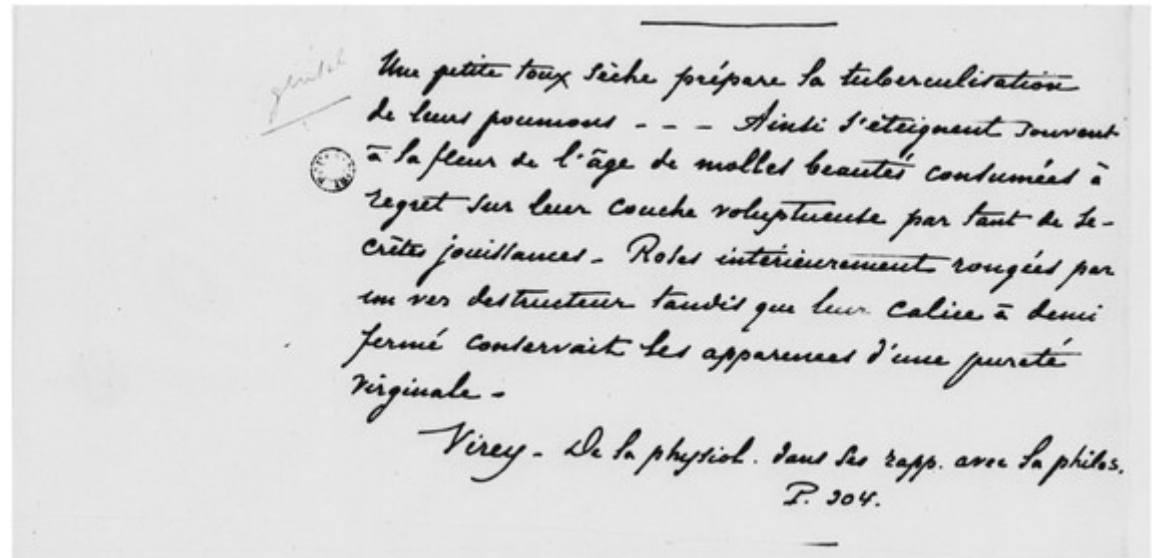 Une petite toux sèche prépare la tuberculisation
de leurs poumons - - - Ainsi s'éteignent souvent
à la fleur de l'âge de molles beautés consumées à
regret sur leur couche voluptueuse par tant de se-
crètes jouissances - Roses intérieurement rongées par
un ver destructeur tandis que leur calice à demi
fermé conservait les apparences d'une pureté
virginale -
Virey - De la physiol. dans ses rapp. avec la philos.
P. 304.